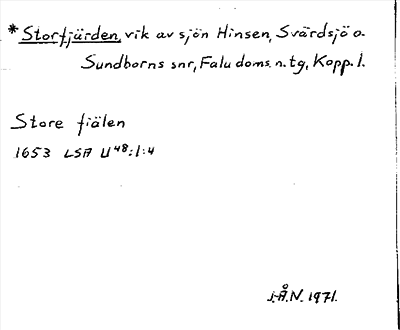 *Storfjärden, vik av sjön Hinsen, Svärdsjö o.
Sundborns snr, Falu doms. n. tg, Kopp. l.
Store fiälen
1653 LSA U48:1:4
J.Å.N. 1971.